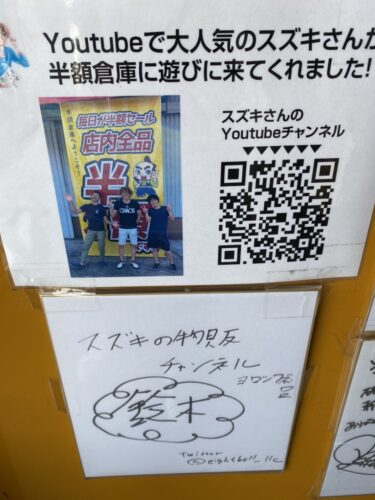 Youtubeで大人気のスズキさんが
半額倉庫に遊びに来てくれました!
スズキさんの
Youtubeチャンネル
▼▼▼▼▼▼▼
半額倉庫へようこそ!
毎日が半額セール
店内全品
半
CHAOS
スズキの物販
チャンネル
鈴木
Twitter